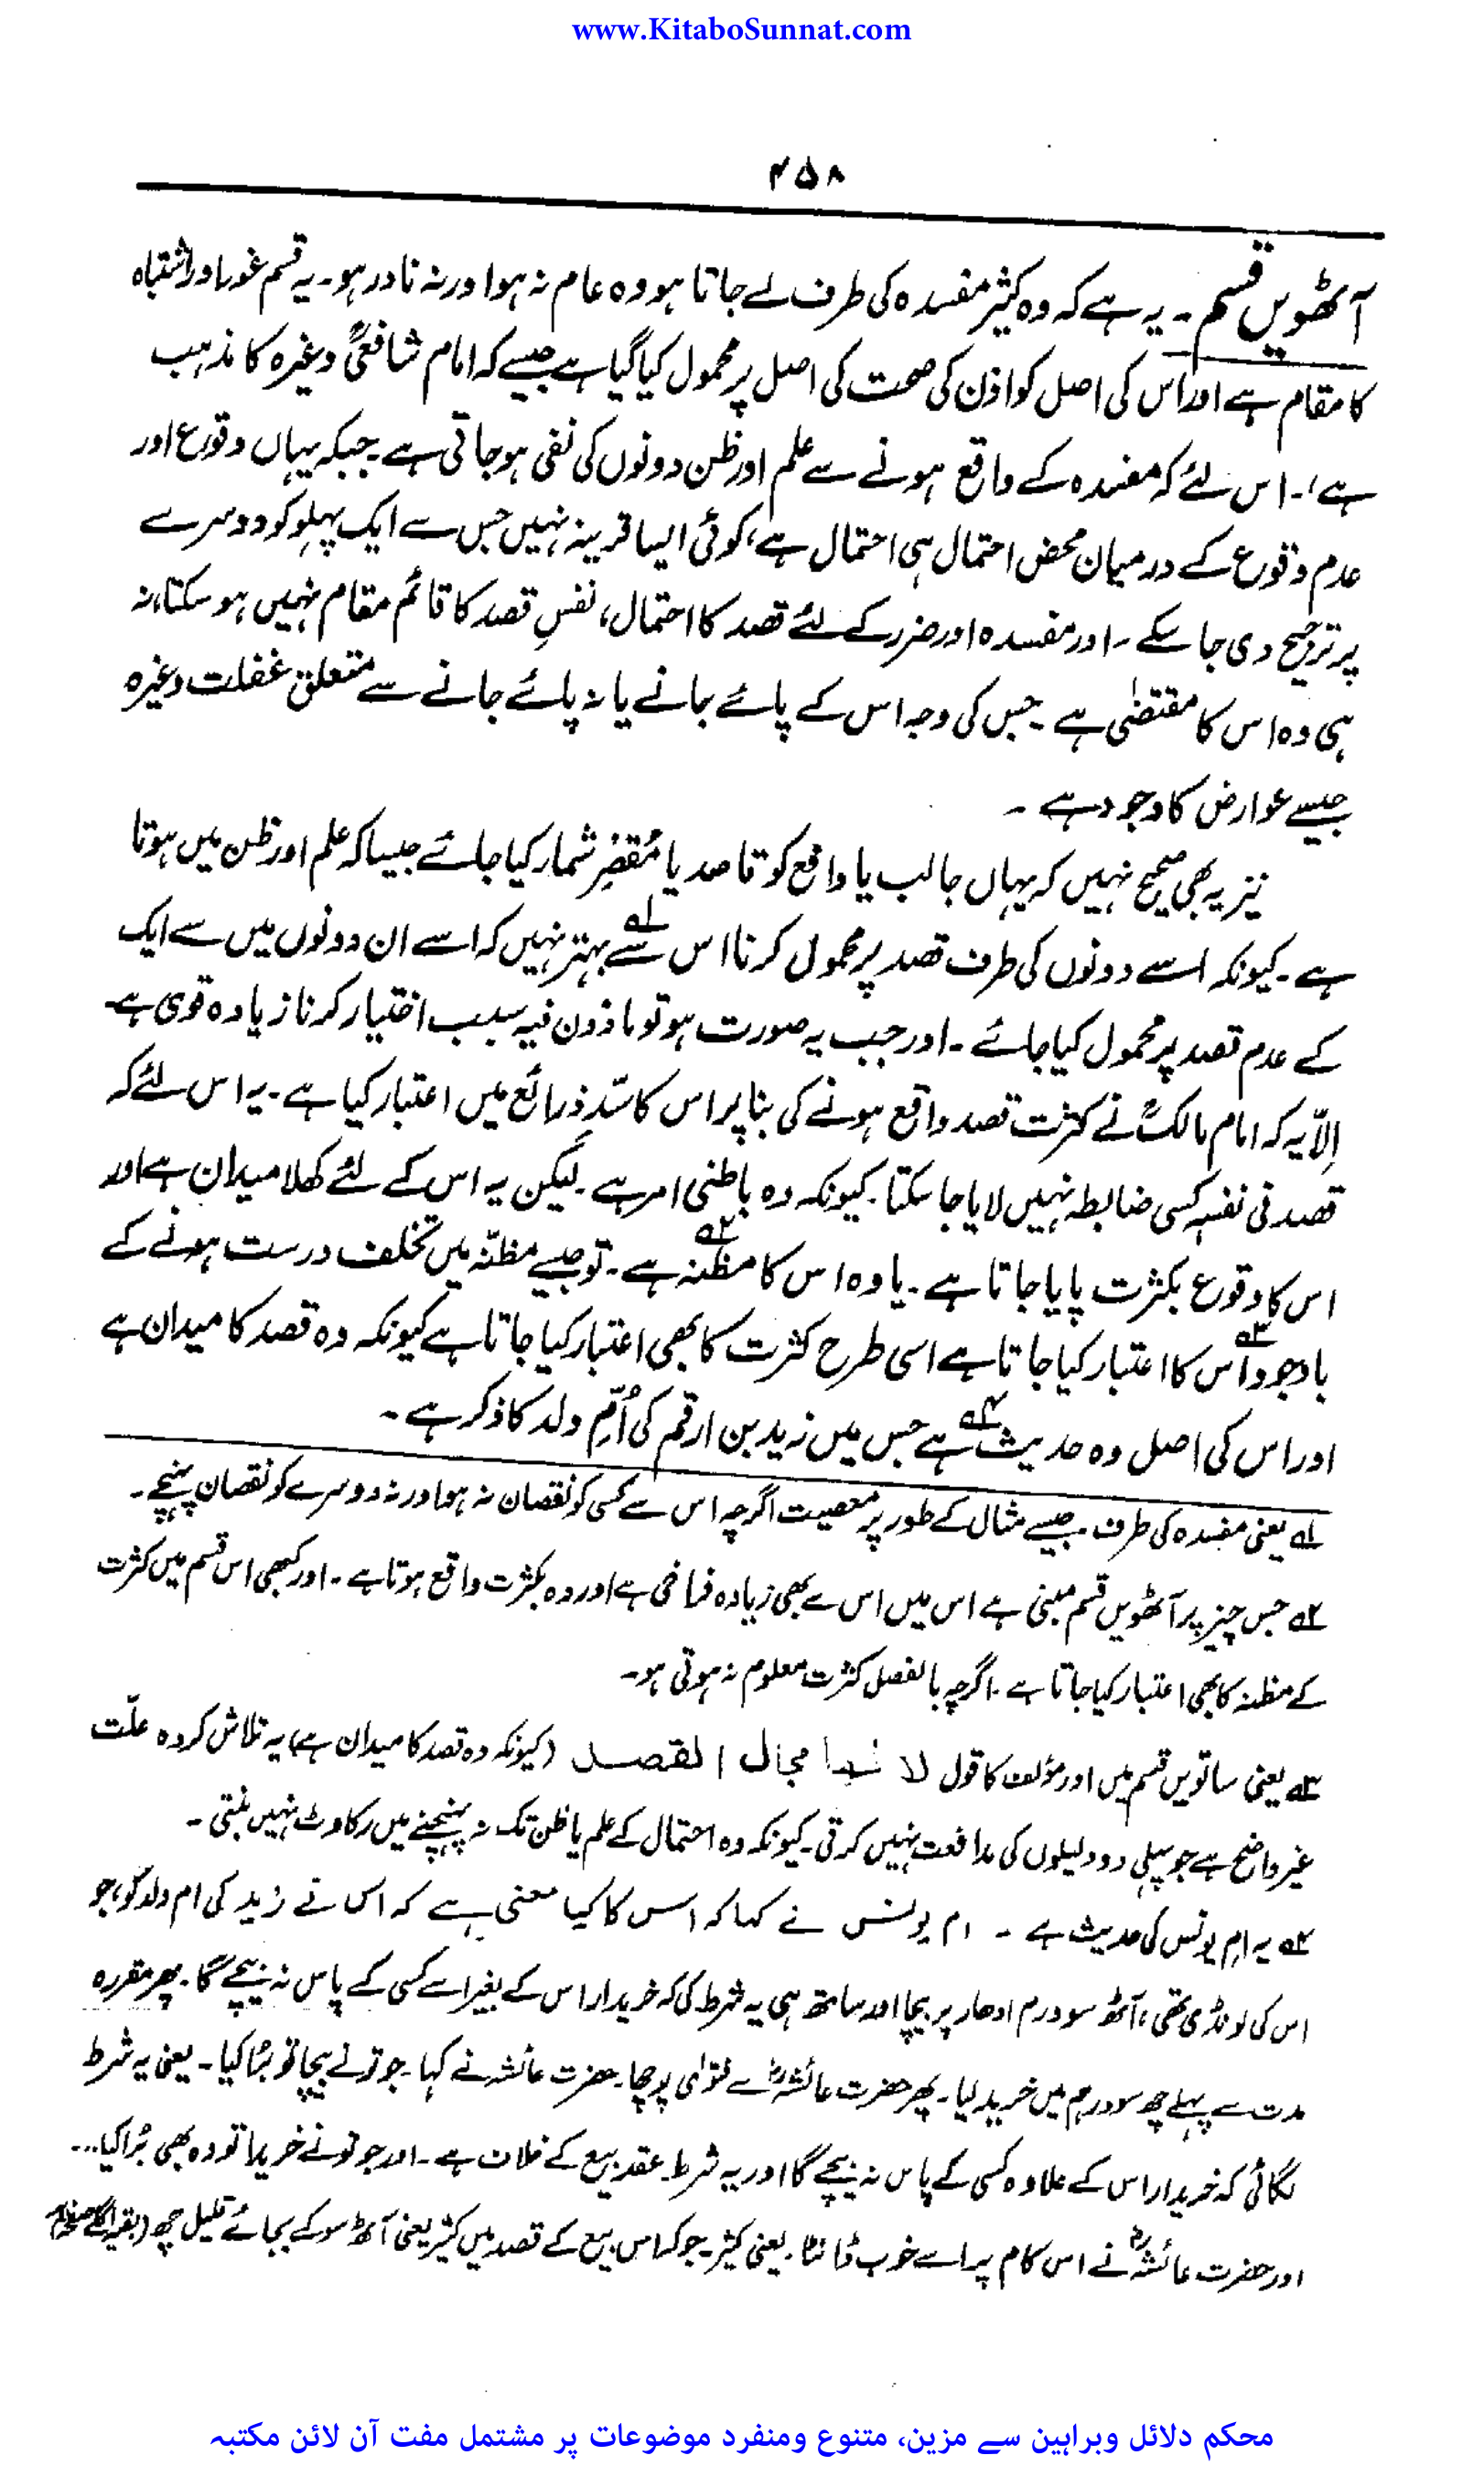 www.KitaboSunnat.com
۴۵۸
آٹھویں قسم ۔ یہ ہے کہ وہ کثیر مفسدہ کی طرف لے جاتا ہو وہ عام نہ ہو اور نہ نادر ہو ۔ یہ قسم غور اور اشتباہ
کا مقام ہے اور اس کی اصل کو اذن کی صحت کی اصل پر محمول کیا گیا ہے جیسے کہ امام شافعیؒ وغیرہ کا مذہب
ہے ۔ اس لئے کہ مفسدہ کے واقع ہونے سے علم اور ظن دونوں کی نفی ہو جاتی ہے ۔ جبکہ یہاں وقوع اور
عدم وقوع کے درمیان محض احتمال ہی احتمال ہے، کوئی ایسا قرینہ نہیں جس سے ایک پہلو کو دوسرے
پر ترجیح دی جا سکے ۔ اور مفسدہ اور ضرر کے لئے قصد کا احتمال، نفسِ قصد کا قائم مقام نہیں ہو سکتا، نہ
ہی وہ اس کا مقتضیٰ ہے ۔ جس کی وجہ اس کے پائے جانے یا نہ پائے جانے سے متعلق غفلت وغیرہ
جیسے عوارض کا وجود ہے ۔
نیز یہ بھی صحیح نہیں کہ یہاں جالب یا دافع کو قاصد یا مُقصِّر شمار کیا جائے جیسا کہ علم اور ظن میں ہوتا
ہے ۔ کیونکہ اسے دونوں کی طرف قصد پر محمول کرنا اس سے ۱؎ بہتر نہیں کہ اسے ان دونوں میں سے ایک
کے عدم قصد پر محمول کیا جائے ۔ اور جب یہ صورت ہو تو ماذون فیہ سبب اختیار کرنا زیادہ قوی ہے ۔
اِلّا یہ کہ امام مالکؒ نے کثرت قصد واقع ہونے کی بنا پر اس کا سدِّ ذرائع میں اعتبار کیا ہے ۔ یہ اس لئے کہ
قصد فی نفسہٖ کسی ضابطہ نہیں لایا جا سکتا ۔ کیونکہ وہ باطنی امر ہے ۔ لیکن یہ اس کے لئے کھلا میدان ہے اور
اس کا وقوع بکثرت پایا جاتا ہے ۔ یا وہ اس کا مظنہ ۲؎ ہے ۔ تو جیسے مظنّہ میں تخلف درست ہونے کے
باوجود اس ۳؎ کا اعتبار کیا جاتا ہے اسی طرح کثرت کا بھی اعتبار کیا جاتا ہے کیونکہ وہ قصد کا میدان ہے
اور اس کی اصل وہ حدیث ۴؎ ہے جس میں زید بن ارقم کی اُمِّ ولد کا ذکر ہے ۔
۱؎ یعنی مفسدہ کی طرف ۔ جیسے مثال کے طور پر معصیت اگرچہ اس سے کسی کو نقصان نہ ہو اور نہ دوسرے کو نقصان پہنچے ۔
۲؎ جس چیز پر آٹھویں قسم مبنی ہے اس میں اس سے بھی زیادہ فراخی ہے اور وہ بکثرت واقع ہوتا ہے ۔ اور کبھی اس قسم میں کثرت
کے مظنہ کا بھی اعتبار کیا جاتا ہے ۔ اگرچہ بالفصل کثرت معلوم نہ ہوتی ہو ۔
۳؎ یعنی ساتویں قسم میں اور مؤلف کا قول لا نھا مجال القصد (کیونکہ وہ قصد کا میدان ہے) یہ تلاش کردہ علّت
غیر واضح ہے جو پہلی دو دلیلوں کی مدافعت نہیں کرتی ۔ کیونکہ وہ احتمال کے علم یا ظن تک نہ پہنچنے میں رکاوٹ نہیں بنتی ۔
۴؎ یہ ام یونس کی حدیث ہے ۔ ام یونس نے کہا کہ اس کا کیا معنی ہے کہ اس نے زید کی ام ولد کو، جو
اس کی لونڈی تھی، آٹھ سو درم ادھار پر بیچا اور ساتھ ہی یہ شرط کی کہ خریدار اس کے بغیر اسے کسی کے پاس نہ بیچے گا ۔ پھر مقررہ
مدت سے پہلے چھ سو درم میں خرید لیا ۔ پھر حضرت عائشہؓ سے فتوٰی پوچھا ۔ حضرت عائشہ نے کہا ۔ جو تو نے بیچا تو بُرا کیا ۔ یعنی یہ شرط
لگائی کہ خریدار اس کے علاوہ کسی کے پاس نہ بیچے گا اور یہ شرط عقد بیع کے خلاف ہے ۔ اور جو تو نے خریدا تو وہ بھی بُرا کیا ...
اور حضرت عائشہؓ نے اس کام پر اسے خوب ڈانٹا ۔ یعنی کثیر ۔ جو کہ اس بیع کے قصد میں کثیر یعنی آٹھ سو کے بجائے قلیل چھ (بقیہ اگلے صفحہ پر)
محکم دلائل وبراہین سے مزین، متنوع ومنفرد موضوعات پر مشتمل مفت آن لائن مکتبہ